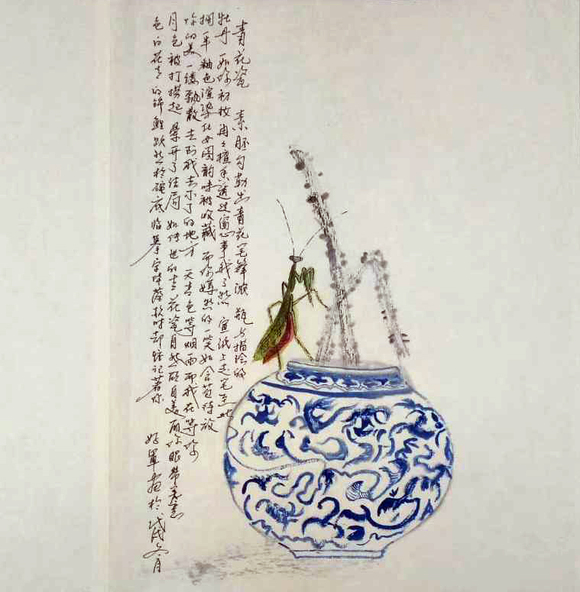 青花瓷 素胚勾勒出青花笔锋浓 瓶身描绘的
牡丹 如你初妆 冉冉檀香透过窗心事我了然 宣纸上走笔至此
搁一半 釉色渲染仕女图韵味被收藏 而你嫣然的一笑如含苞待放
你的美一缕飘散 去到我去不了的地方 天青色等烟雨 而我在等你
月色被打捞起 晕开了结局 如传世的青花瓷自然自美丽 你眼带笑意
色白花青的锦鲤跃然于碗底 临摹宋体落款时却惦记着你
军画於戊戌冬月